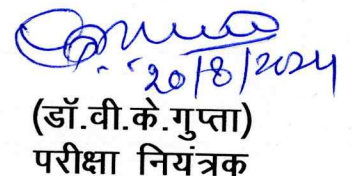 20/8/2024
(डॉ.वी.के.गुप्ता)
परीक्षा नियंत्रक